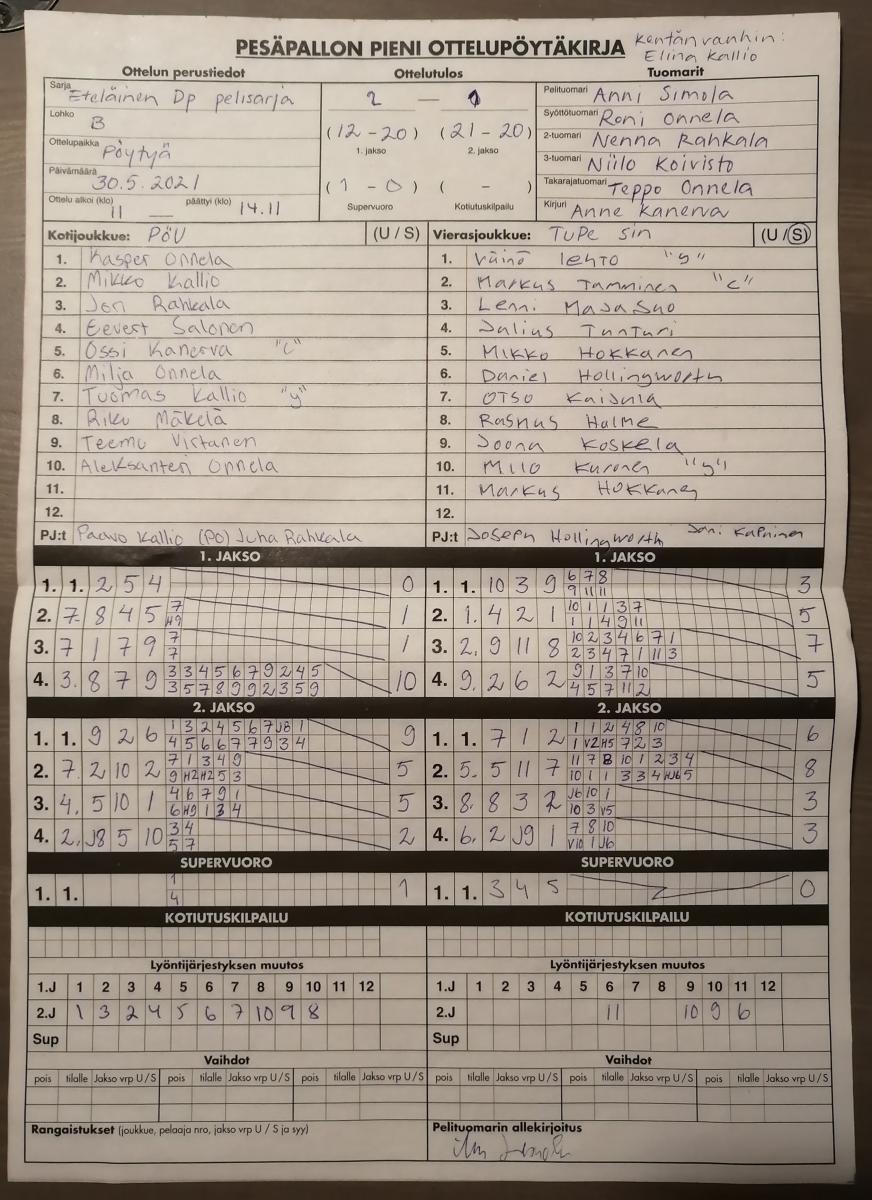 PESÄPALLON PIENI OTTELUPÖYTÄKIRJA
Kentänvanhin:
Elina Kallio
Ottelun perustiedot
Ottelutulos
Tuomarit
Sarja Eteläinen Dp pelisarja
Lohko B
Ottelupaikka Pöytyä
Päivämäärä 30.5.2021
Ottelu alkoi (klo) 11 päättyi (klo) 14.11
2 —
(12 - 20) (21 - 20)
1. jakso 2. jakso
(1 - 0) ( - )
Supervuoro Kotiutuskilpailu
Pelituomari Anni Simola
Syöttötuomari Roni Onnela
2-tuomari Nenna Rahkala
3-tuomari Niilo Koivisto
Takarajatuomari Teppo Onnela
Kirjuri Anne Kanerva
Kotijoukkue: PöU (U / S)
1. Kasper Onnela
2. Mikko Kallio
3. Joni Rahkala
4. Eevert Salonen
5. Ossi Kanerva "c"
6. Milja Onnela
7. Tuomas Kallio "y"
8. Riku Mäkelä
9. Teemu Virtanen
10. Aleksanteri Onnela
11.
12.
PJ:t Paavo Kallio (PO) Juha Rahkala
Vierasjoukkue: TuPe Sin (U / S)
1. Väinö Lehto "y"
2. Markus Tamminen "c"
3. Lenni Majasuo
4. Julius Tunturi
5. Mikko Hokkanen
6. Daniel Hollingworth
7. Otso Kaijula
8. Rasmus Halme
9. Joona Koskela
10. Milo Kuronen "y"
11. Markus Hokkanen
12.
PJ:t Joseph Hollingworth Jani
1. JAKSO
1. 1. 2 5 4 0
2. 7. 8 4 5 7 1
H9
3. 7 1 7 9 7 1
7
4. 3. 8 7 9 3 3 4 5 6 7 9 2 4 5 10
3 5 7 8 9 9 2 3 5 9
2. JAKSO
1. 1. 9 2 6 1 3 2 4 5 6 7 J8 1 9
4 5 6 6 7 7 9 3 4
2. 7. 2 10 2 7 1 3 4 9 5
9 H2 H2 5 3
3. 4. 5 10 1 4 6 7 9 1 5
6 H9 1 3 4
4. 2. J8 5 10 3 4 2
5 7
SUPERVUORO
1. 1. 1 1
4
KOTIUTUSKILPAILU
1. JAKSO
1. 1. 10 3 9 6 7 8 3
9 11 11
2. 1. 4 2 1 10 1 1 3 7 5
1 1 4 9 11
3. 2. 9 11 8 10 2 3 4 6 7 1 7
2 3 4 7 1 11 3
4. 9. 2 6 2 9 1 3 7 10 5
4 5 7 11 2
2. JAKSO
1. 1. 7 1 2 1 1 2 4 8 10 6
1 V2 H5 7 2 3
2. 5. 5 11 7 11 7 8 10 1 2 3 4 8
10 1 1 3 3 4 HJ6 5
3. 8. 8 3 2 J6 10 1 3
10 3 V5
4. 6. 2 J9 1 7 8 10 3
V10 1 J6
SUPERVUORO
1. 1. 3 4 5 0
KOTIUTUSKILPAILU
Lyöntijärjestyksen muutos
1.J 1 2 3 4 5 6 7 8 9 10 11 12
2.J 1 3 2 4 5 6 7 10 9 8
Sup
Vaihdot
pois tilalle Jakso vrp U / S pois tilalle Jakso vrp U / S pois tilalle Jakso vrp U / S
Lyöntijärjestyksen muutos
1.J 1 2 3 4 5 6 7 8 9 10 11 12
2.J 11 10 9 6
Sup
Vaihdot
pois tilalle Jakso vrp U / S pois tilalle Jakso vrp U / S pois tilalle Jakso vrp U / S
Rangaistukset (joukkue, pelaaja nro, jakso vrp U / S ja syy)
Pelituomarin allekirjoitus